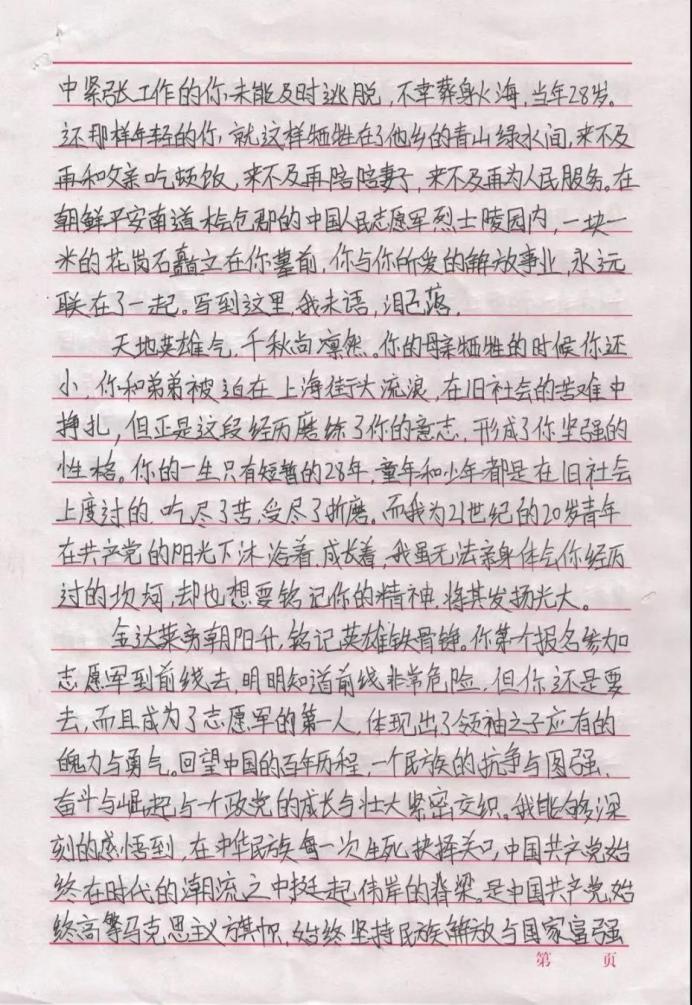 中紧张工作的你,未能及时逃脱,不幸葬身火海,当年28岁。
还那样年轻的你,就这样牺牲在了他乡的青山绿水间,来不及
再和父亲吃顿饭,来不及再陪陪妻子,来不及再为人民服务。在
朝鲜平安南道桧仓郡的中国人民志愿军烈士陵园内,一块一
米的花岗石矗立在你墓前,你与你所爱的解放事业,永远
联在了一起。写到这里,我未语,泪已落.
天地英雄气,千秋尚凛然。你的母亲牺牲的时候你还
小,你和弟弟被迫在上海街头流浪,在旧社会的苦难中
挣扎,但正是这段经历磨练了你的意志,形成了你坚强的
性格。你的一生只有短暂的28年,童年和少年都是在旧社会
上度过的,吃尽了苦,受尽了折磨。而我为21世纪的20岁青年
在共产党的阳光下沐浴着,成长着,我虽无法亲身体会你经历
过的坎坷,却也想要铭记你的精神,将其发扬光大。
金达莱旁朝阳升,铭记英雄铁骨铮。你第个报名参加
志愿军到前线去,明明知道前线非常危险,但你还是要
去,而且成为了志愿军的第一人,体现出了领袖之子应有的
魄力与勇气。回望中国的百年历程,一个民族的抗争与图强,
奋斗与崛起与一个政党的成长与壮大紧密交织。我能够深
刻的感悟到,在中华民族每一次生死抉择关口,中国共产党始
终在时代的潮流之中挺起伟岸的脊梁。是中国共产党,始
终高举马克思主义旗帜,始终坚持民族解放与国家富强
第 页